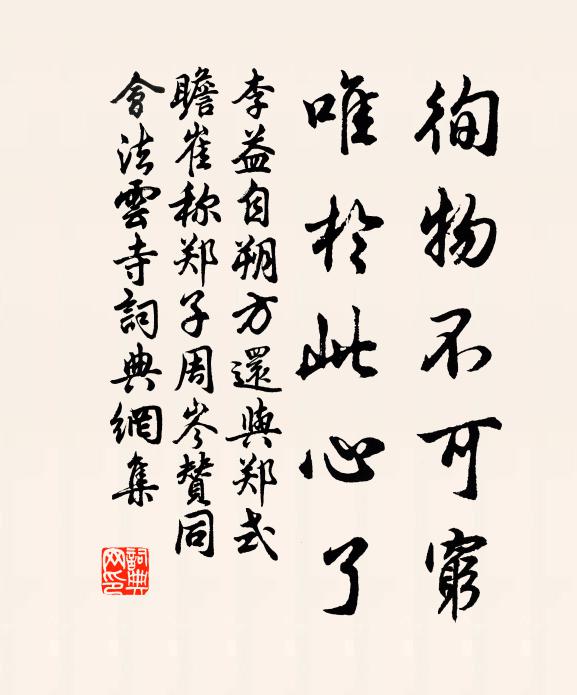 徇物不可窮
唯於此心了
李益自朔方還與郑式
瞻崔称郑子周岑贊同
會法雲寺詞典網集
詞典网印